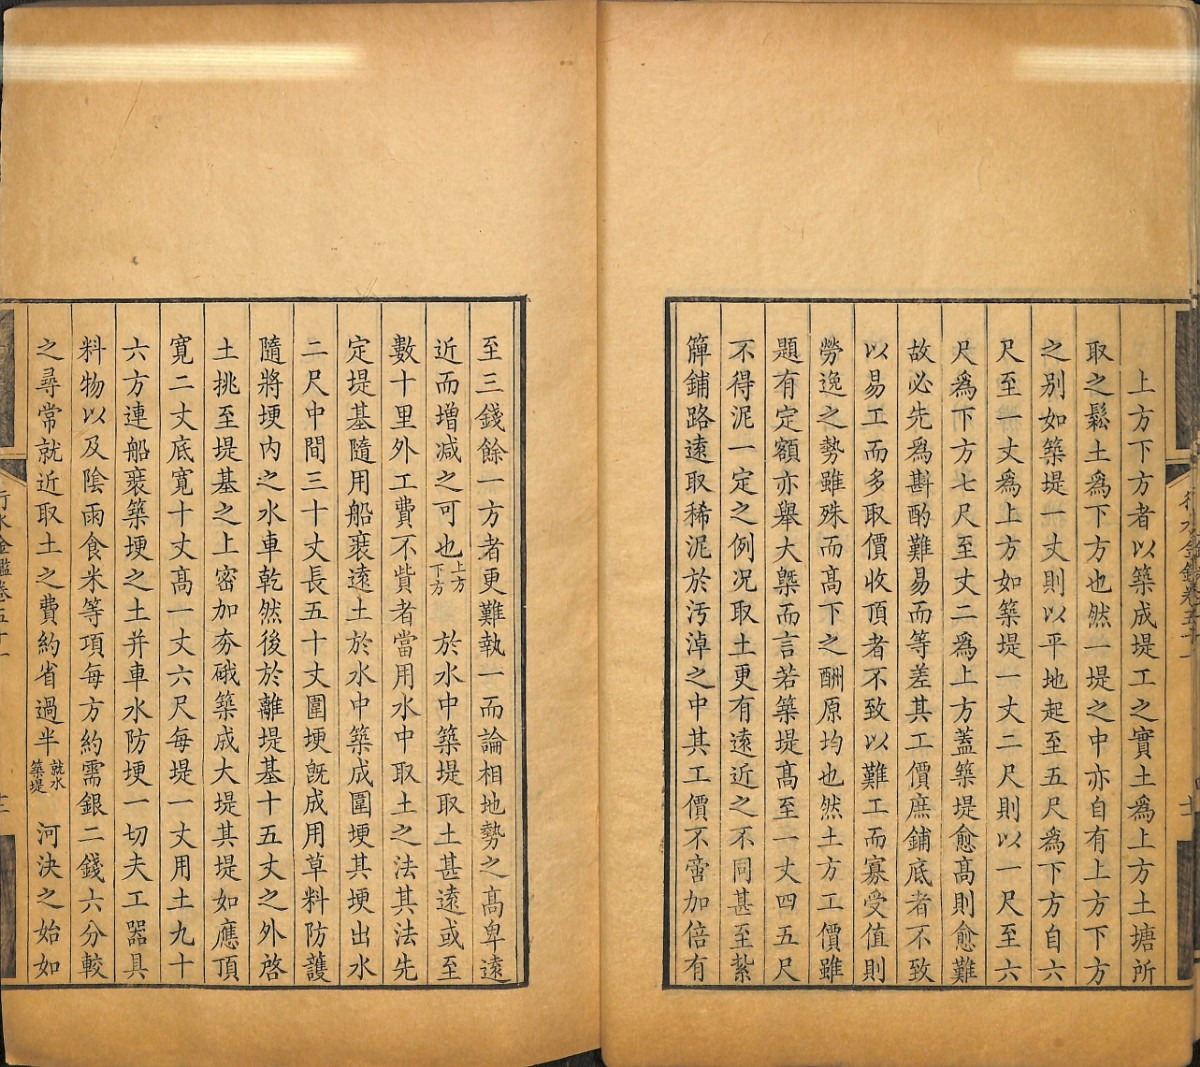 上方下方者以築成堤工之實土為上方土塘所
取之鬆土為下方也然一堤之中亦自有上方下方
之別如築堤一丈則以平地起至五尺為下方自六
尺至一丈為上方如築堤一丈二尺則以一尺至六
尺為下方七尺至丈二為上方蓋築堤愈髙則愈難
故必先為斟酌難易而等差其工價庶鋪底者不致
以易工而多取價收頂者不致以難工而寡受值則
勞逸之勢雖殊而髙下之酬原均也然土方工價雖
題有定額亦舉大槩而言若築堤髙至一丈四五尺
不得泥一定之例况取土更有遠近之不同甚至紮
簰鋪路逺取稀泥於汚淖之中其工價不啻加倍有
至三錢餘一方者更難執一而論相地勢之髙卑逺
近而增减之可也上方下方 於水中築堤取土甚逺或至
數十里外工費不貲者當用水中取土之法其法先
定堤基隨用船裝逺土於水中築成圍埂其埂出水
二尺中間三十丈長五十丈圍埂旣成用草料防護
隨將埂内之水車乾然後於離堤基十五丈之外啓
土挑至堤基之上密加夯硪築成大堤其堤如應頂
寛二丈底寛十丈髙一丈六尺每堤一丈用土九十
六方連船裝築埂之土并車水防埂一切夫工器具
料物以及陰雨食米等項每方約需銀二錢六分較
之尋常就近取土之費約省過半就水築堤 河決之始如
行水金鑑卷五十一